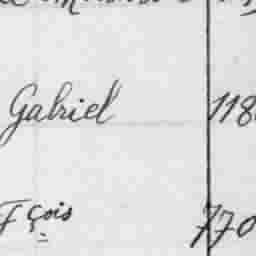 Gabriel 118
Fçois 770